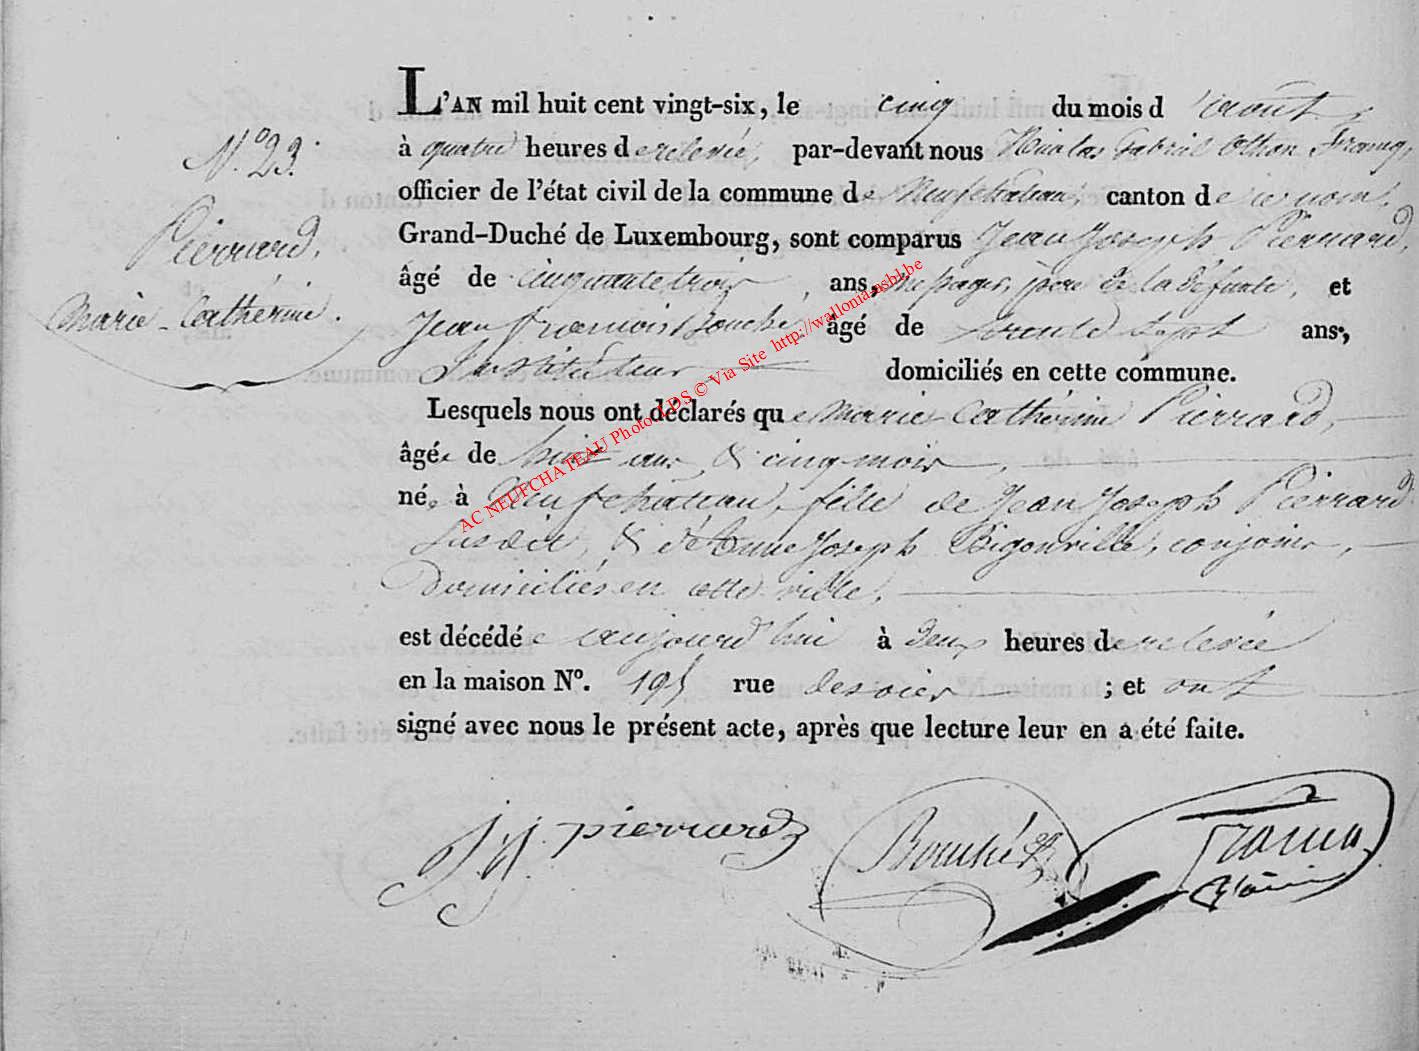 L'AN mil huit cent vingt-six, le cinq du mois d'août,
N.º 23.
à quatre heures de relevée, par-devant nous Nicolas Gabriel Othon
officier de l'état civil de la commune de Neufchateau, canton de ce nom,
Pierrard,
Grand-Duché de Luxembourg, sont comparus Jean Joseph Pierrard,
âgé de cinquante trois ans, messager, père de la défunte, et
Marie-Catherine.
Jean François Bouché, âgé de trente sept ans,
Instituteur domiciliés en cette commune.
Lesquels nous ont déclarés que Marie-Cathérine Pierrard,
âgée de huit ans, & cinq mois,
née à Neufchâteau, fille de Jean Joseph Pierrard
susdit, & d'Anne Joseph Bigonville, conjoins,
domiciliés en cette ville,
est décédée aujourd'hui à deux heures de relevée
en la maison Nº. 195 rue ; et ont
signé avec nous le présent acte, après que lecture leur en a été faite.
JJ. pierrard
Bouché
AC NEUFCHATEAU Photo LDS © Via Site http://wallonia.asbl.be